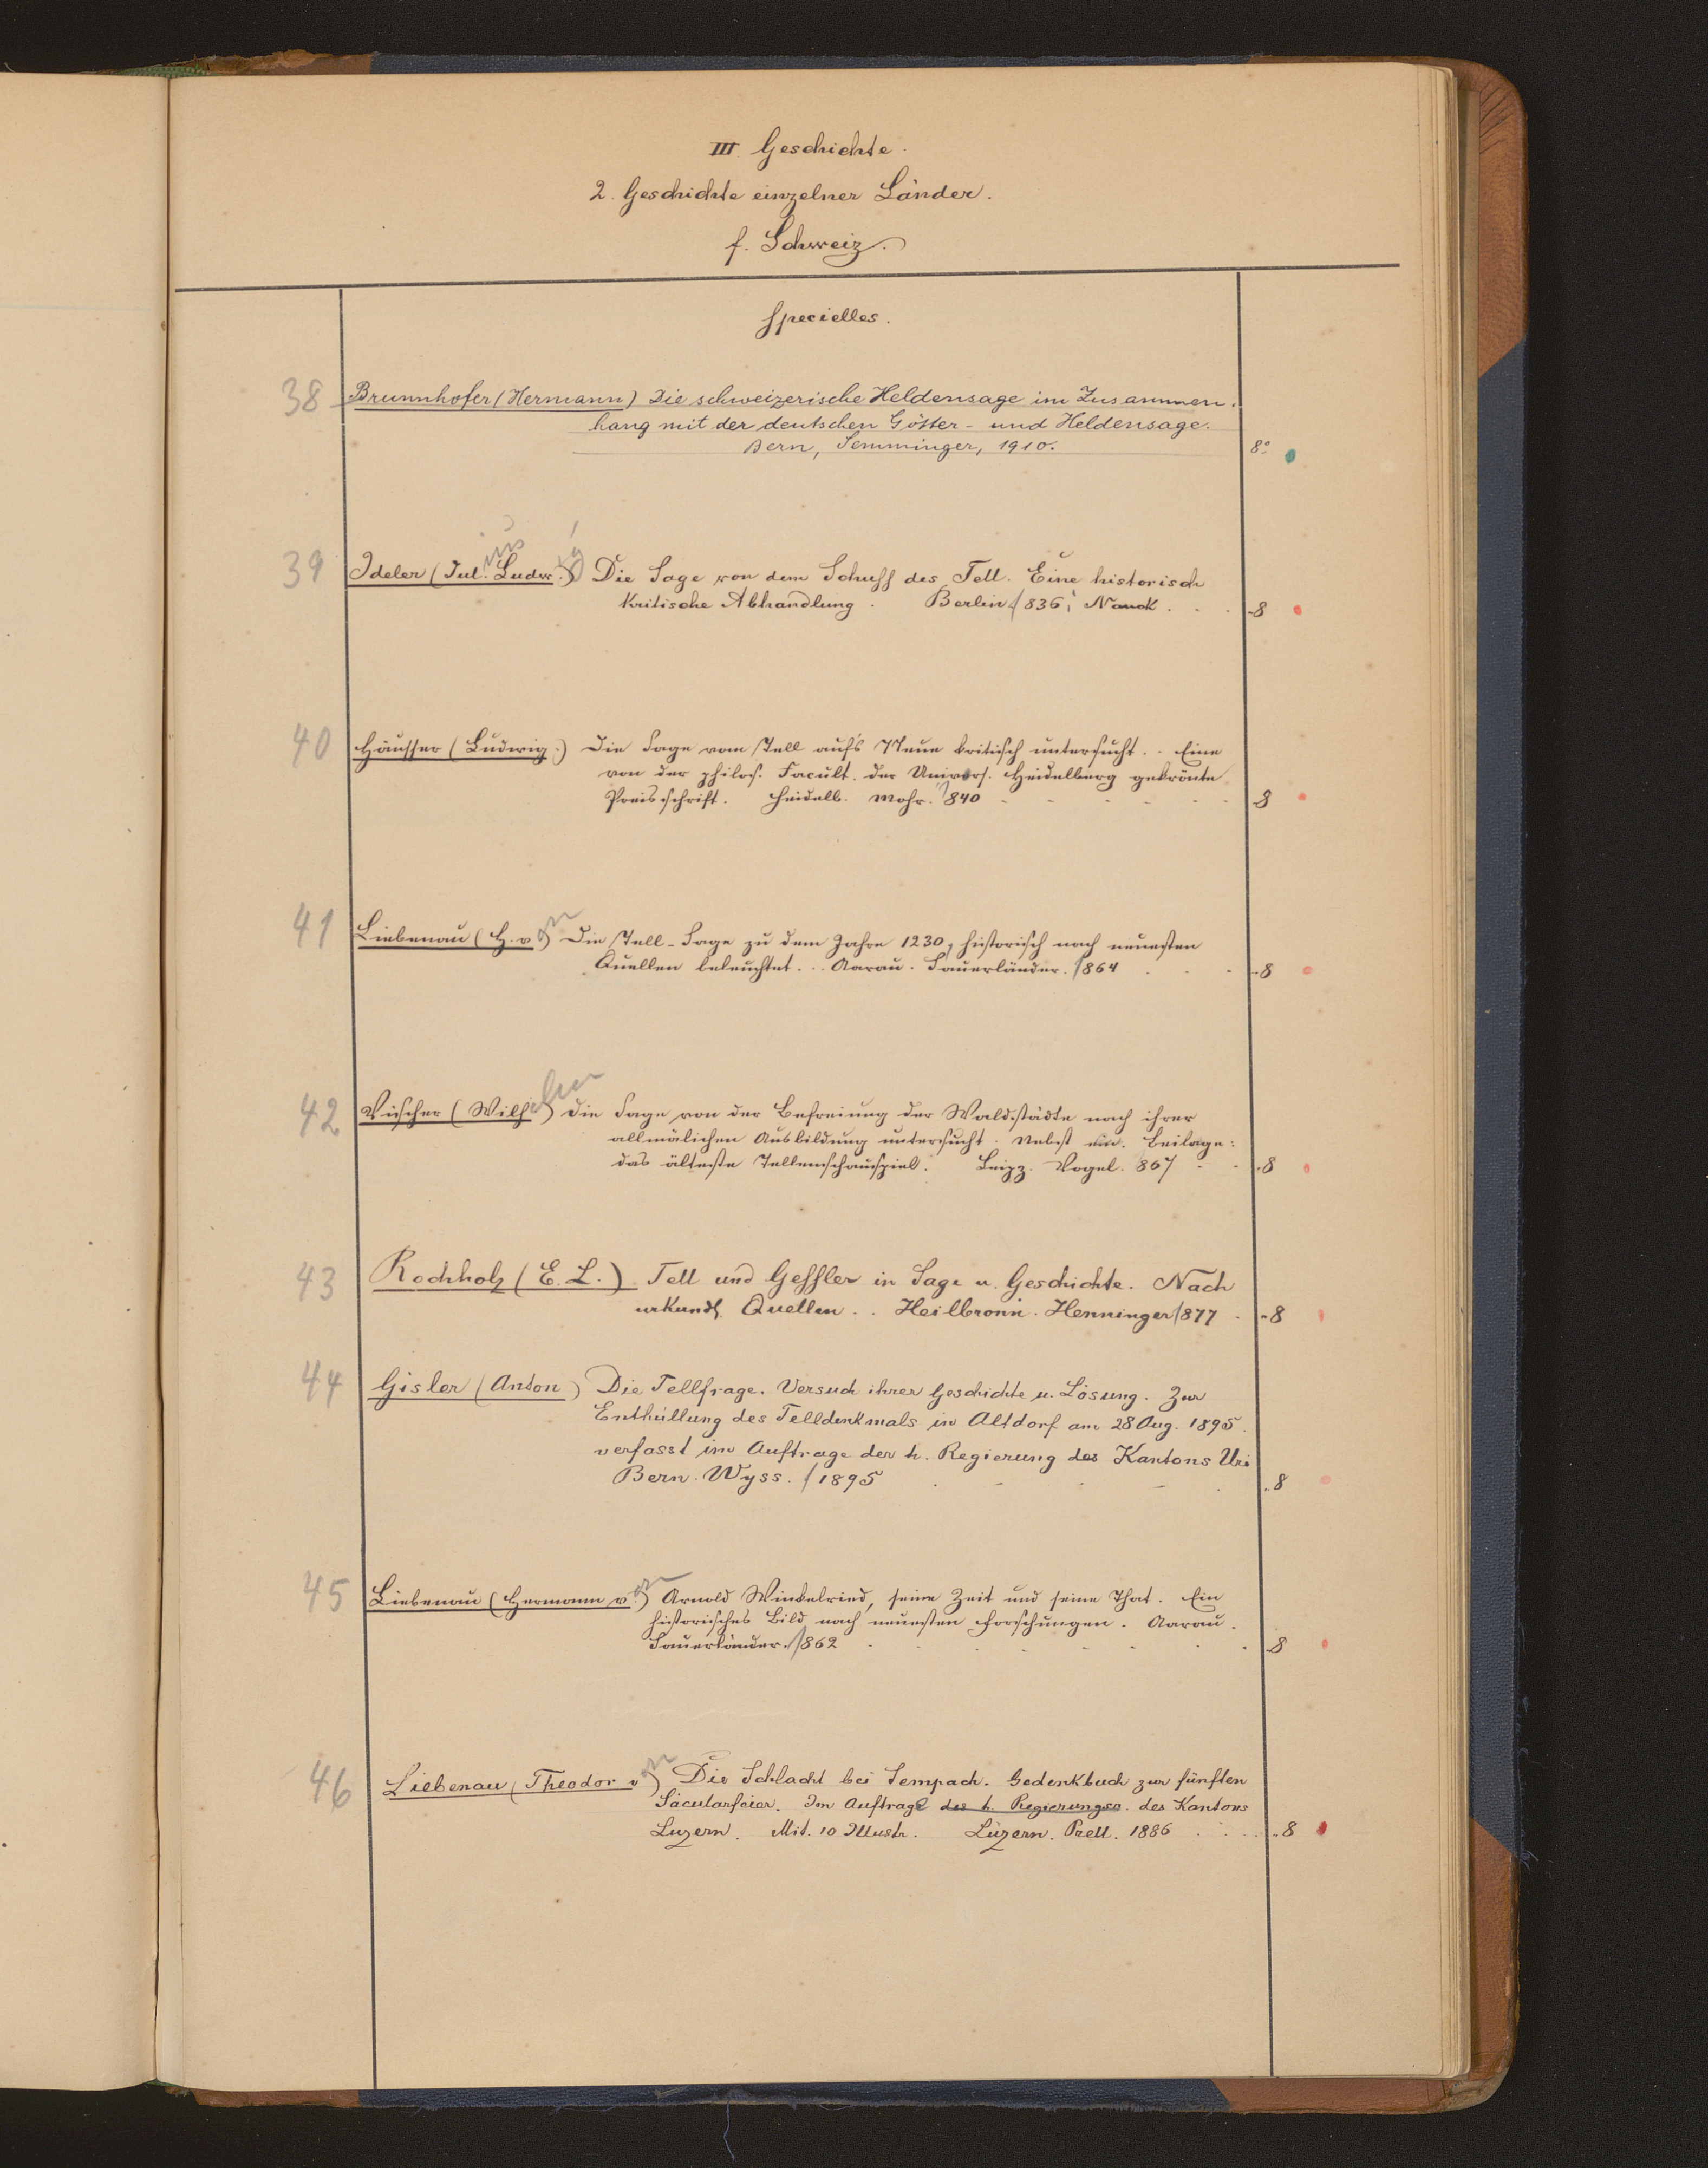 III. Geschichte.
2. Geschichte einzelner Länder.
f. Schweiz.
Specielles.
38 Brunnhofer (Hermann) Die schweizerische Heldensage im Zusammen-
hang mit der deutschen Götter- und Heldensage.
Bern, Semminger, 1910. 8°
39 Ideler (Jul.ius Ludw.ig) Die Sage von dem Schuss des Tell. Eine historisch
kritische Abhandlung. Berlin 1836, Nauck . . . 8
40 Häusser (Ludwig.) Die Sage vom Tell aufs Neue kritisch untersucht. . Eine
von der philos. Facult. der Univers. Heidelberg gekrönte
Preisschrift. Heidelb. Mohr. 1840 - - - - - - 8
41 Liebenau (H. von) Die Tell-Sage zu dem Jahre 1230, historisch nach neuesten
Quellen beleuchtet. . . Aarau. Sauerländer. 1864 . . . 8
42 Vischer (Wilhelm) Die Sage von der Befreiung der Waldstädte nach ihrer
allmälichen Ausbildung untersucht. Nebst ein. Beilage:
das älteste Tellenschauspiel. Leipz. Vogel. 867 - - 8
43 Rochholz (E. L.) Tell und Gessler in Sage u. Geschichte. Nach
urkundl. Quellen . . Heilbronn. Henninger 1877 . - 8
44 Gisler (Anton) Die Tellfrage. Versuch ihrer Geschichte u. Lösung. Zur
Enthüllung des Telldenkmals in Altdorf am 28 Aug. 1895.
verfasst im Auftrage der h. Regierung des Kantons Uri
Bern. Wyss. 1895 . - - - . 8
45 Liebenau (Hermann von) Arnold Winkelried, seine Zeit und seine That. Ein
historisches Bild nach neuesten Forschungen. Aarau.
Sauerländer. 1862 . . . . . . . 8
46 Liebenau (Theodor von) Die Schlacht bei Sempach. Gedenkbuch zur fünften
Säcularfeier. Im Auftrage des h. Regierungsr. des Kantons
Luzern. Mit. 10 Illustr. Luzern. Prell. 1886 . . . . 8